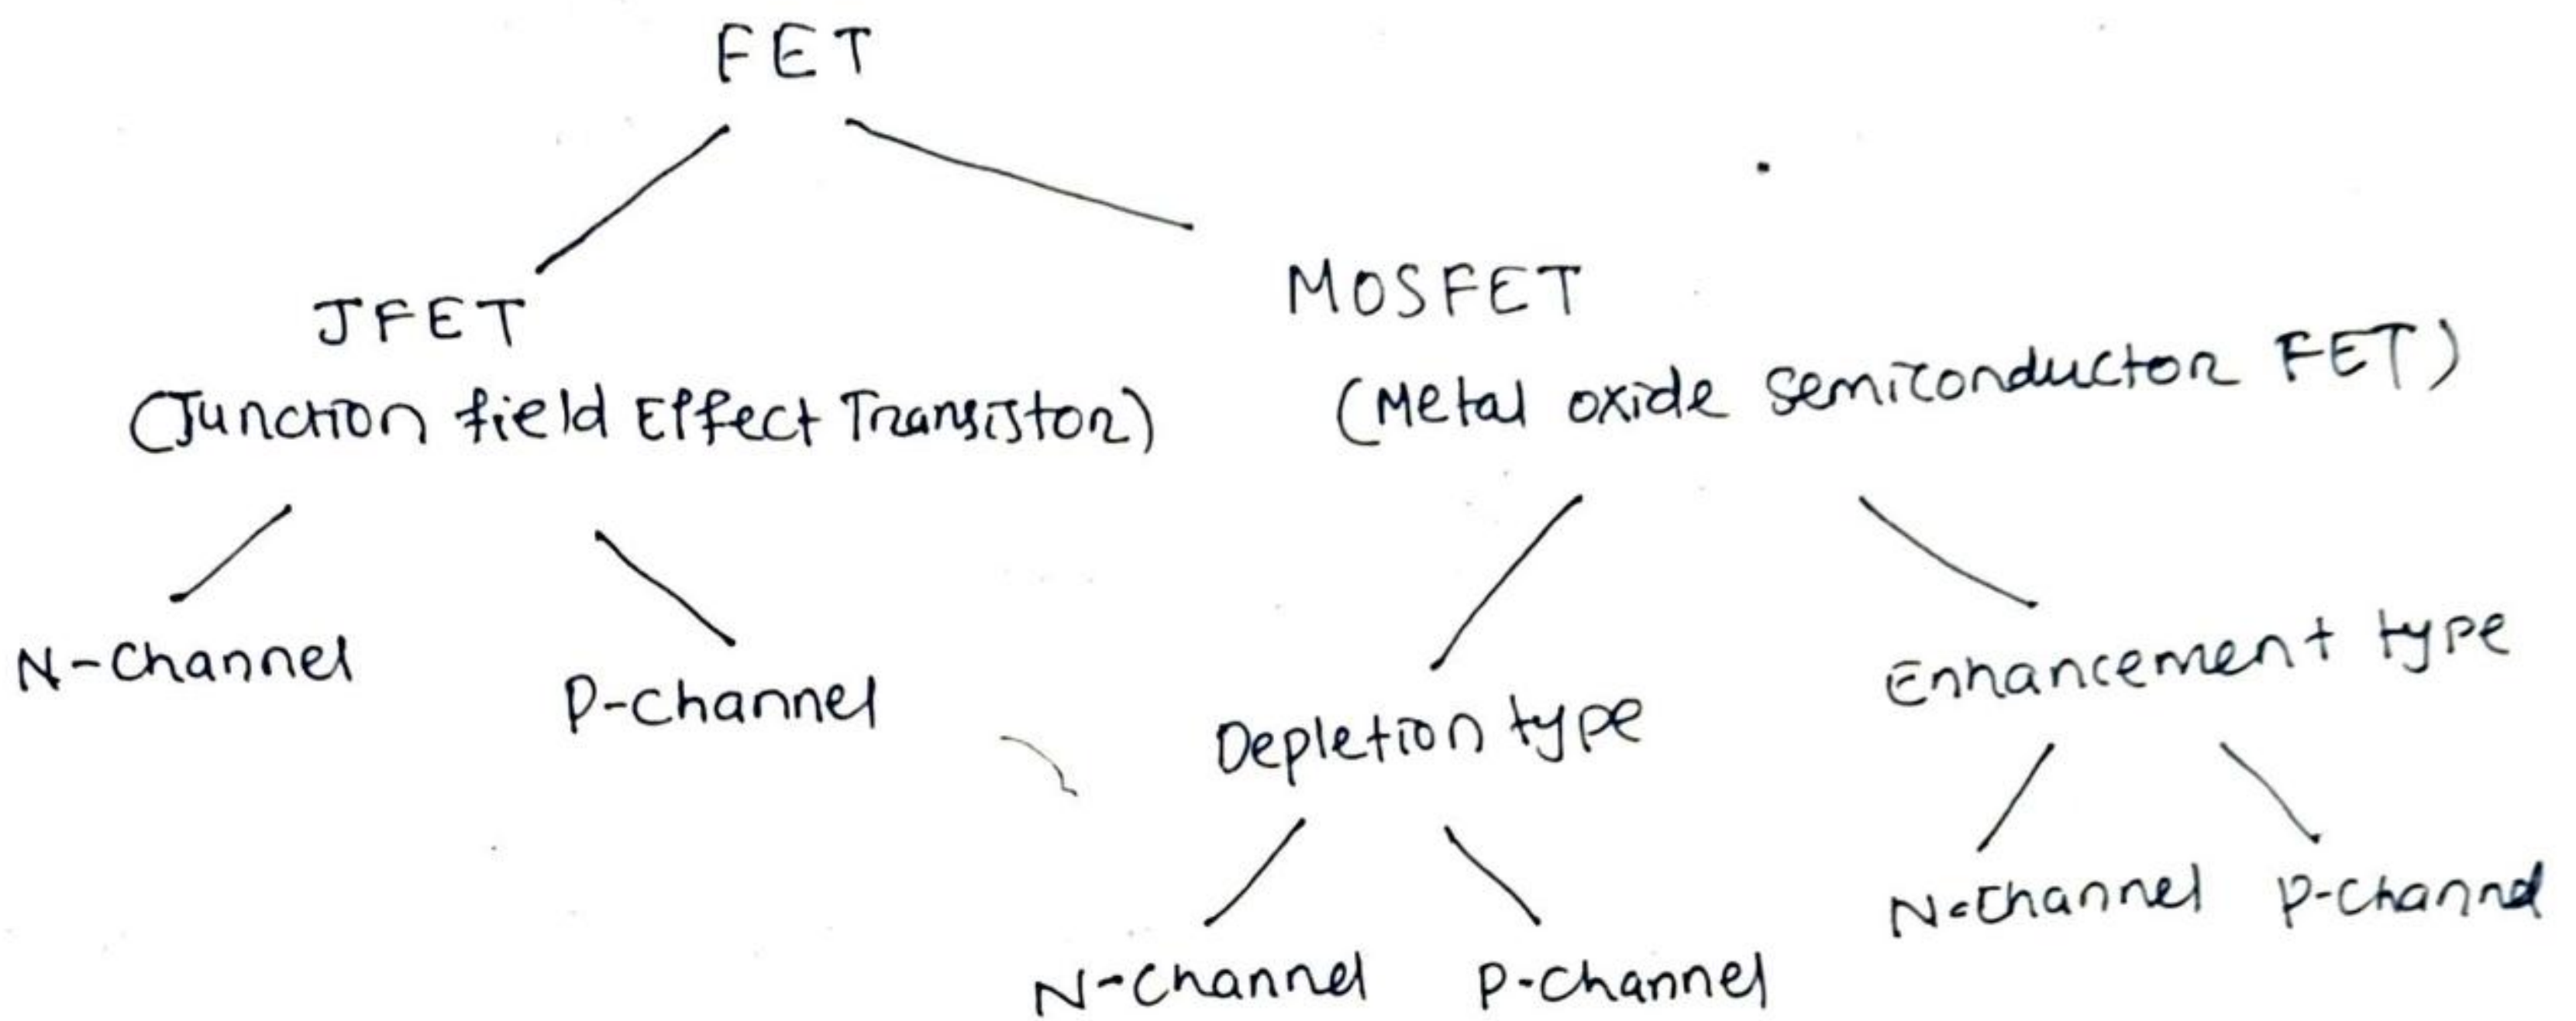 FET
JFET
(Junction field Effect Transistor)
MOSFET
(Metal oxide semiconductor FET)
N-Channel
P-Channel
Depletion type
Enhancement type
N-Channel
P-Channel
N-Channel
P-Channel